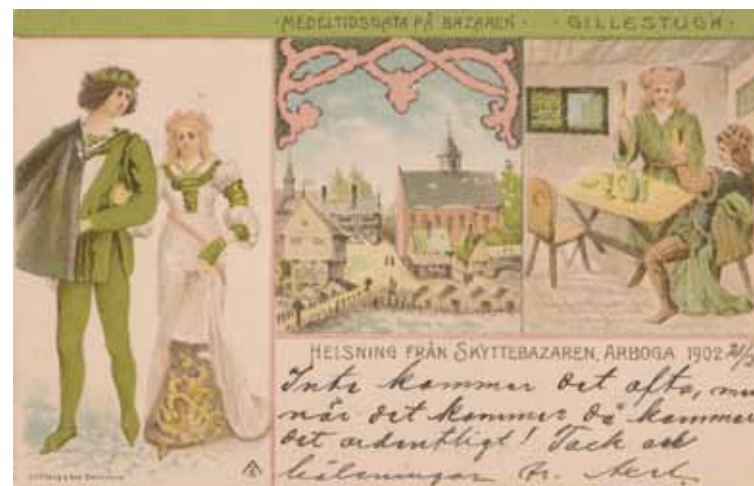 · MEDELTIDSGATA PÅ BAZAREN · · GILLESTUGA ·
HELSNING FRÅN SKYTTEBAZAREN, ARBOGA 1902
Inte kommer det ofta, men
när det kommer då kommer
det ordentligt! Tack och
hälsningar fr.